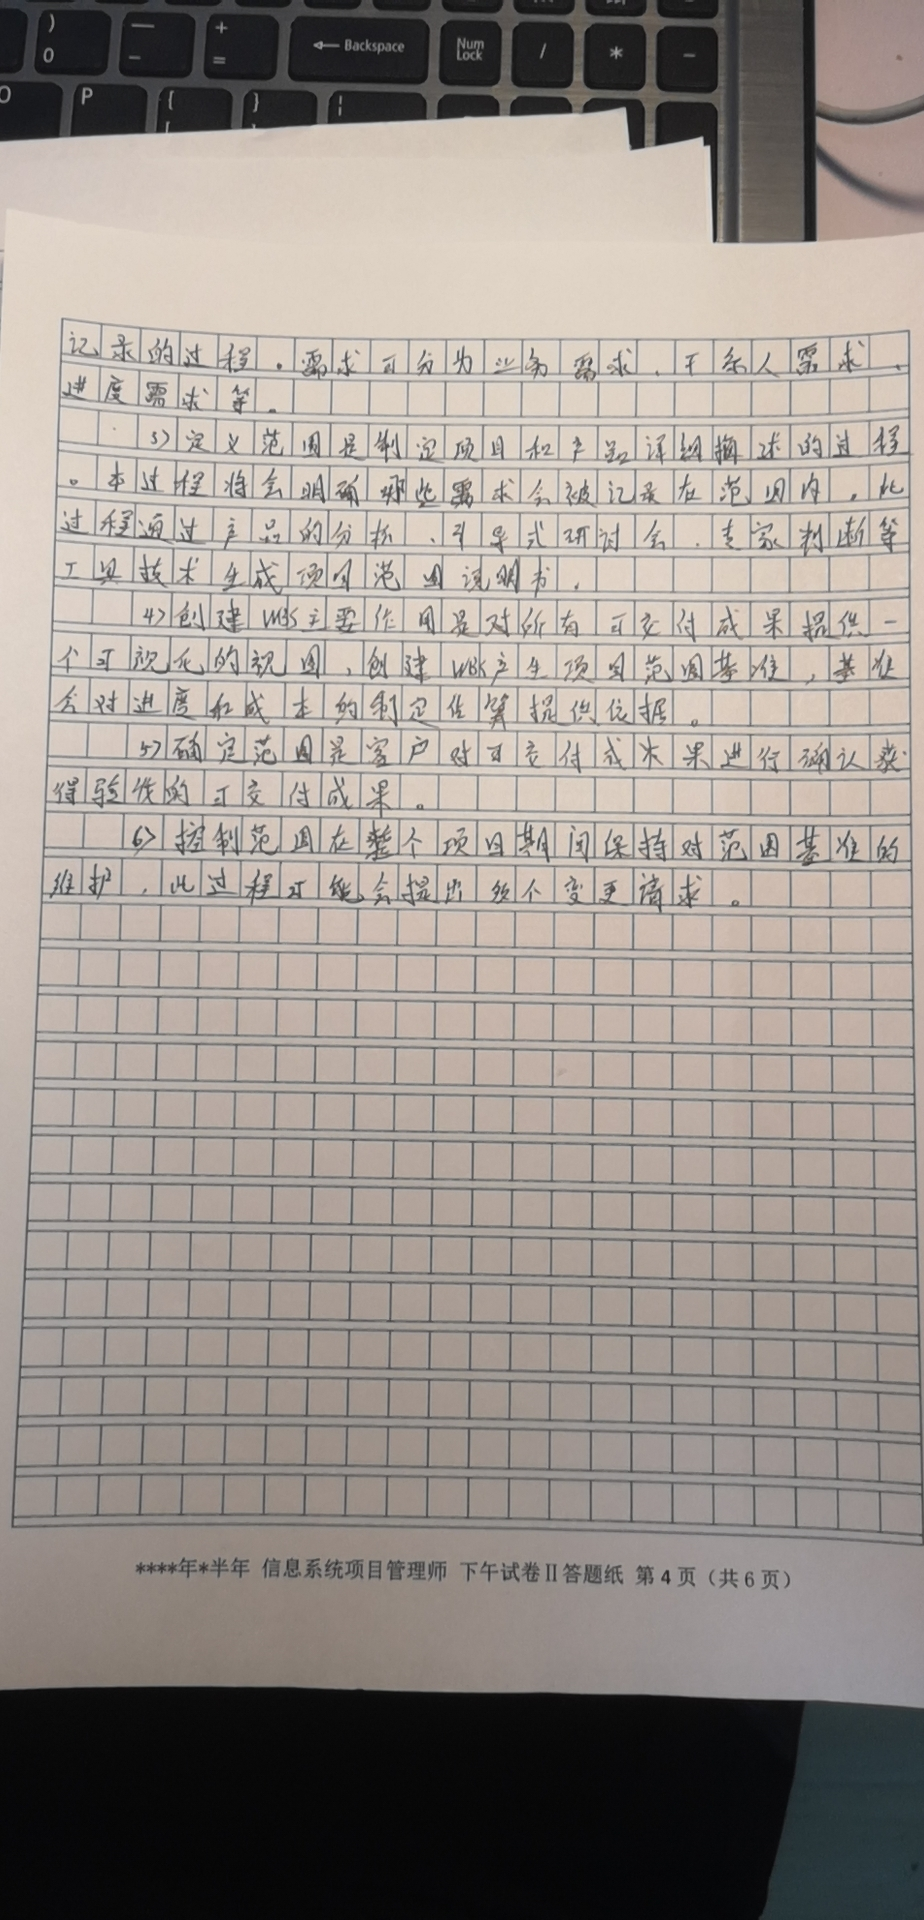 )
0
—
-
+
=
← Backspace
Num
Lock
/
*
-
O
P
{
[
}
记录的过程。需求可分为业务需求、干系人需求、
进度需求等。
3)定义范围是制定项目和产品详细描述的过程
。本过程将会明确哪些需求会被记录在范围内。此
过程通过产品的分析、引导式研讨会、专家判断等
工具技术生成项目范围说明书。
4)创建WBS主要作用是对所有可交付成果提供一
个可视化的视图,创建WBS产生项目范围基准,基准
会对进度和成本的制定估算提供依据。
5)确定范围是客户对可交付成果进行确认获
得验收的可交付成果。
6)控制范围在整个项目期间保持对范围基准的
维护,此过程可能会提出 个变更请求。
****年*半年 信息系统项目管理师 下午试卷Ⅱ答题纸 第4页(共6页)